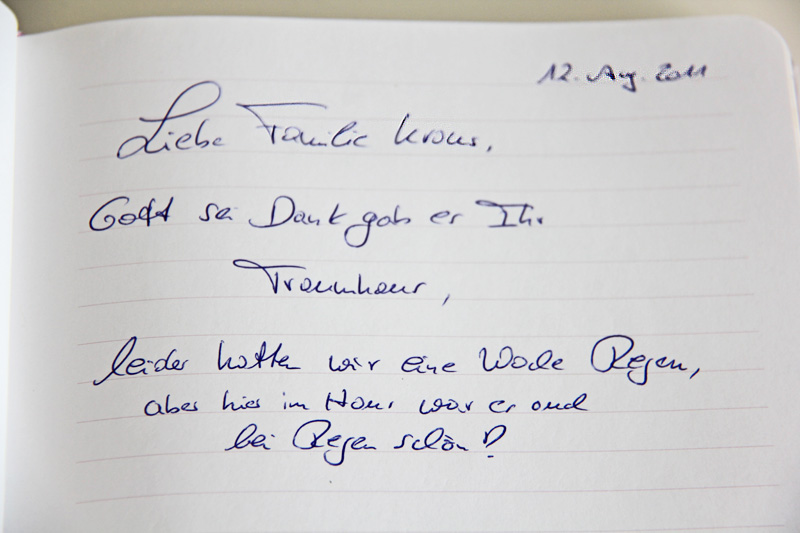 12. Aug. 2011
Liebe Familie Kraus,
Gott sei Dank gab es Ihr
Traumhaus,
leider hatten wir eine Woche Regen,
aber hier im Haus war es auch
bei Regen schön!